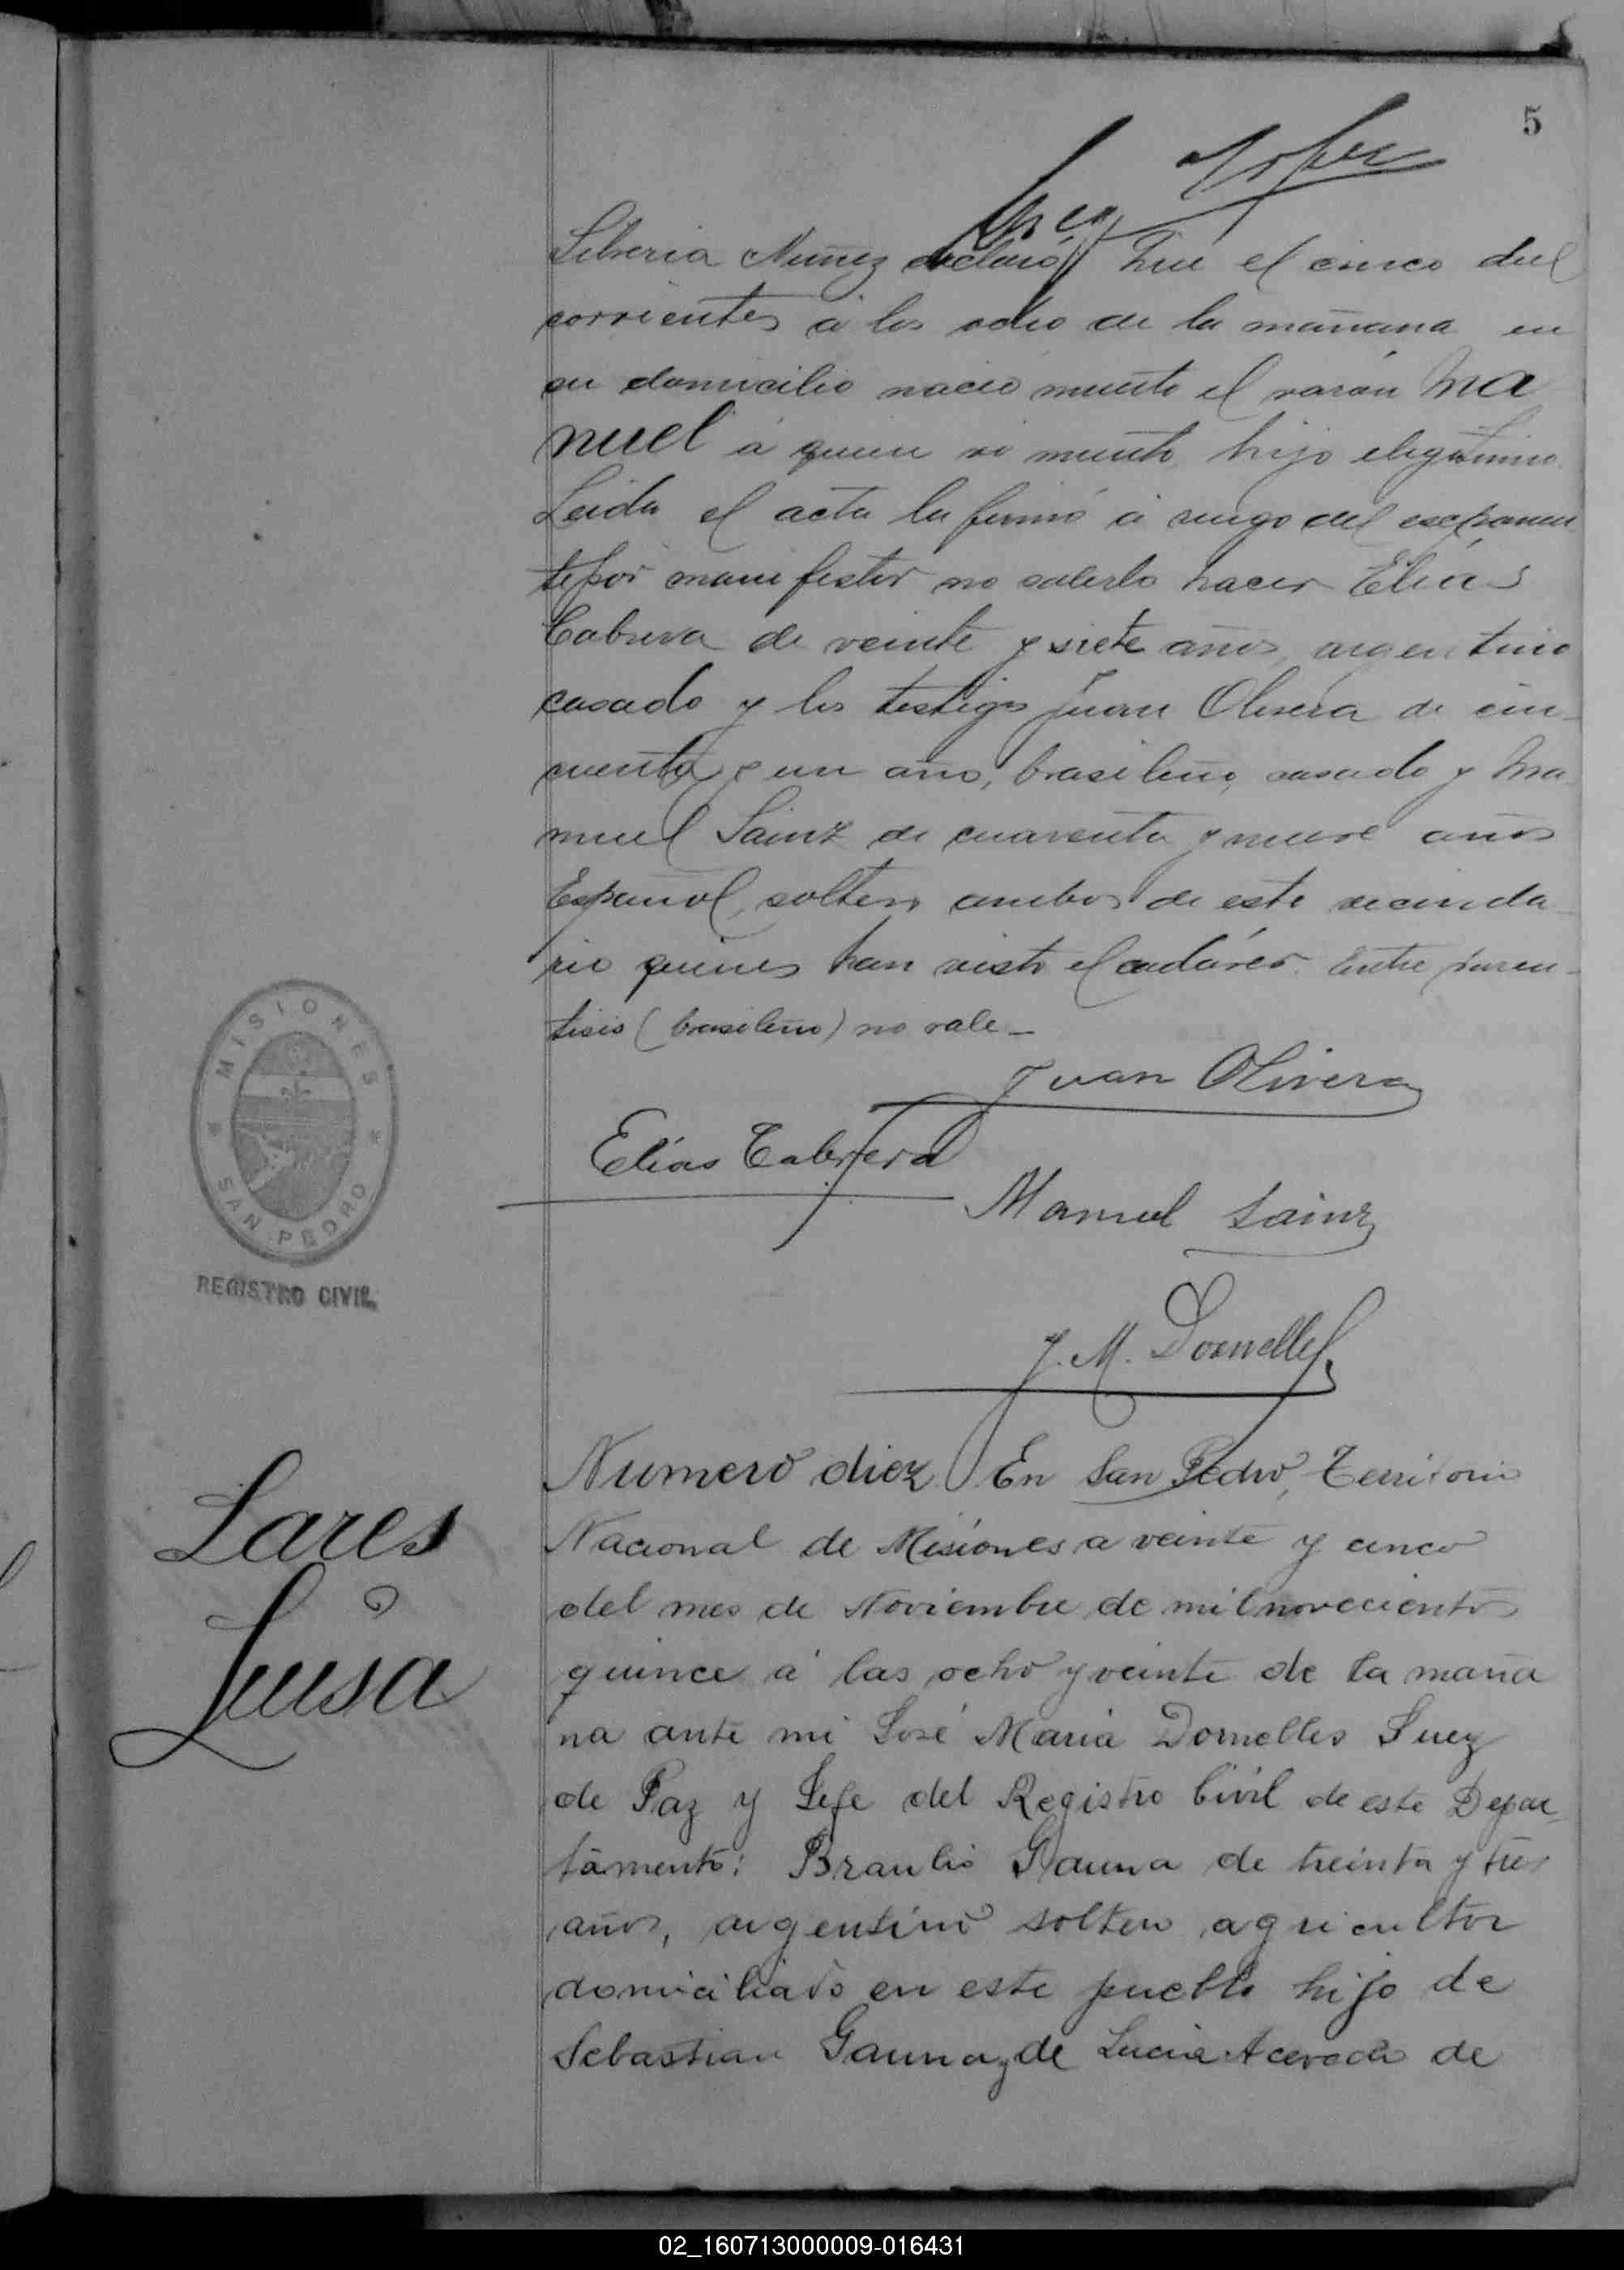 5
Liberia Nuñez declaró: Que el cinco del
corrientes á las ocho de la mañana en
su domicilio nació muerto el varón Ma
nuel á quien vi muerto, hijo elegitimo.
Leida el acta la firmó á ruego del esponen
te por manifestar no saberlo hacer Elías
Cabrera de veinte y siete años, argentino
casado y los testigos Juan Olivera de cin-
cuenta y un año, brasileño, casado y Ma
nuel Sainz de cuarenta y nueve años
Español, soltero ambos de este vecinda-
rio quienes han visto el cadáver. Entre paren-
tisis (brasileño) no vale_
Juan Olivera
Elías Cabrera
Manuel Sainz
MISIONES
SAN PEDRO
REGISTRO CIVIL
J. M. Dornelles
Lares
Luisa
Numero diez En San Pedro, Territorio
Nacional de Misiones a veinte y cinco
del mes de Noviembre de mil novecientos
quince á las ocho y veinte de la maña
na ante mi José Maria Dornelles Juez
de Paz y Jefe del Registro Civil de este Depar_
tamento: Braulio Gauna de treinta y tres
años, argentino soltero agricultor
domiciliado en este pueblo hijo de
Sebastian Gauna y de Lucia Acevedo de
02_160713000009-016431